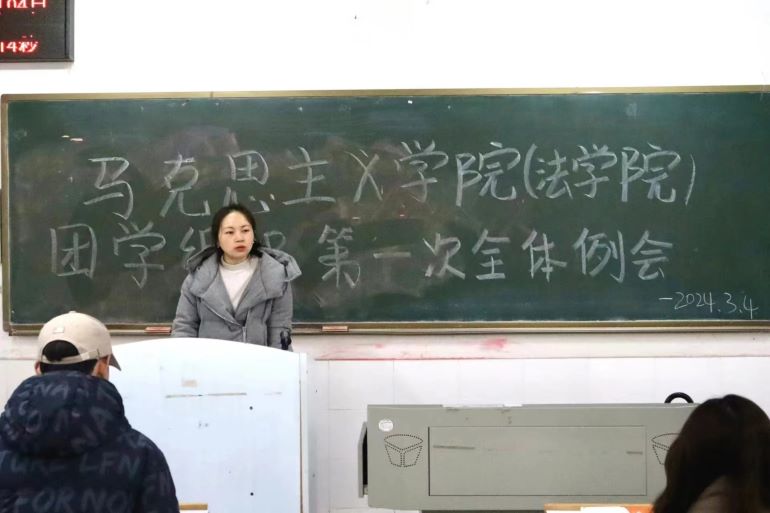 04日
14秒
马克思主义学院(法学院)
团学组织第一次全体例会
-2024.3.4